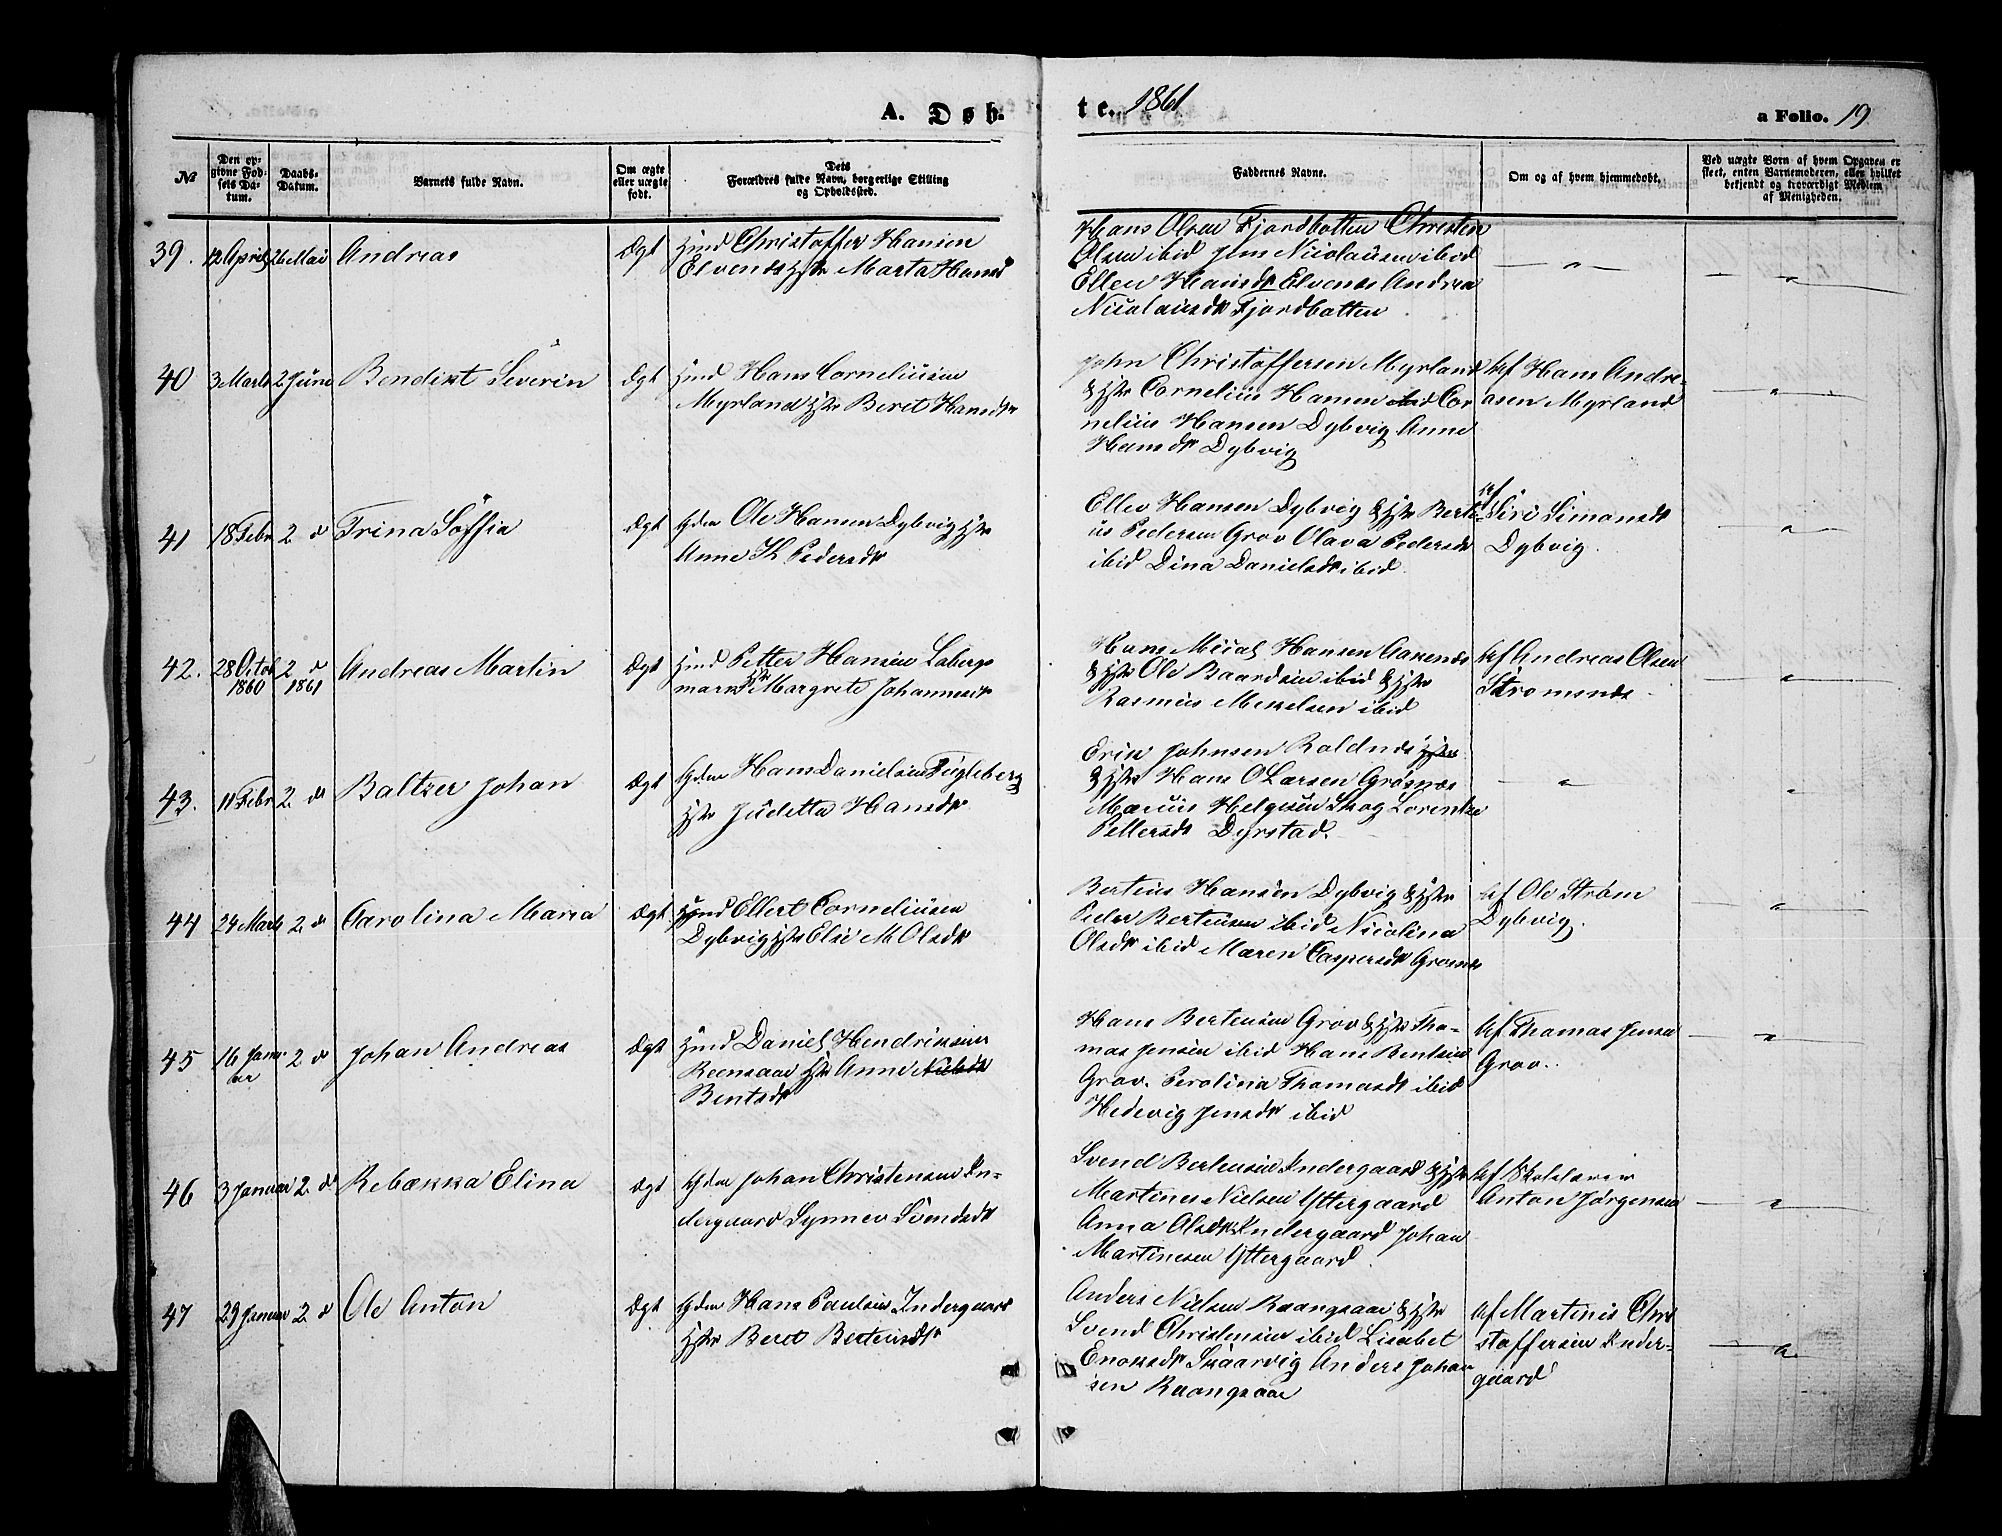 A. Døb-
te. 1861
a Folio. 19.
№
Den op-
givne Fød-
sels Da-
tum.
Daabs-
Datum.
Barnets fulde Navn.
Om ægte
eller uægte
født.
Dets
Forældres fulde Navn, borgerlige Stilling
og Opholdssted.
Faddernes Navne.
Om og af hvem hjemmedøbt.
Ved uægte Børn af hvem Opgaven er
skeet, enten Barnemoderen, eller hvilket
bekjendt og troværdigt Medlem
af Menigheden.
39. 12 April 26 Mai Andreas Ægt Hmd Christoffer Hansen
Elvenes Hstr Marta Hansd
Hans Olsen Fjordbotten Christen
Olsen ibid Jens Nicolaisen ibid
Ellen Hansdr Elvenes Andrea
Nicolaisdr Fjordbotten
40 3 Marts 2 Juni Bendikt Severin Ægt Hmd Hans Corneliusen
Myrland Hstr Beret Hansdr
John Christoffersen Myrland
& Hstr Cornelius Hansen ibid Cor
nelius Hansen Dybvig Anne
Hansdr Dybvig
Af Hans Andre-
asen Myrland
41 18 Febr 2 d Trina Soffia Ægt Gdm Ole Hansen Dybvig Hstr
Anne K Pedersdr
Eller Hansen Dybvig & Hstr Berti-
us Pedersen Grov Olava Pedersdr
ibid Dina Danielsdr ibid
Af
Siri Simonsdr
Dybvig.
42. 28 Octob 2 d Andreas Martin Ægt Hmd Petter Hansen Laberg
1860 1861
mark Hstr Margrete Johannesdr
Hans Micael Hansen Aanes
& Hstr Ole Baardsen ibid & Hstr
Rasmus Mekelsen ibid
Af Andreas Olsen
Strømsnes
43. 11 Febr 2. d Baltzer Johan Ægt Gdm Hans Danielsen Fugleberg
Hstr Judetta Hansdr
Erik Johnsen Roldnes Hstr
& Hstr Hans O Larsen Grøsnes
Marius Helgesen Skog Lorentze
Pettersdr Dyrstad.
44 24 Marts 2. d Carolina Maria Ægt Hmd Ellert Corneliusen
Dybvig Hstr Elie M Olsdr
Bertius Hansen Dybvig & Hstr
Peder Berteusen ibid Nicolina
Olsdr ibid Maren Caspersdr Grøsnes
Af Ole Strøm
Dybvig.
45 16 Janu 2 d Johan Andreas Ægt Hmd Daniel Hendriksen
ar
Reensaae Hstr Anne
Bentsdr
Hans Berteusen Grov & Hstr Tho-
mas Jensen ibid Hans Bentsen
Grov. Perolina Thomasdr ibid
Hedevig Jensdr ibid
Af Thomas Jensen
Grov.
46 3 Januar 2 d Rebekka Elina Ægt Gdm Johan Christensen In-
dergaard Synnev Svendsdr
Svend Berteusen Indergaard & Hstr
Martines Nielsen Yttergaard
Anna Olsdr Indergaard Johan
Martinesen Yttergaard
Af Skolelærer
Anton Jørgensen
47 29 Januar 2. d Ole Anton Ægt Gdm Hans Paulsen Indergaard
Hstr Beret Berteusdr
Anders Nielsen Raangsaae & Hstr
Svend Christensen ibid Lisabet
Enoksdr Skaarvig Anders Johan
sen Raangsaae
Af Martinis Chri
stoffersen Inder-
gaard